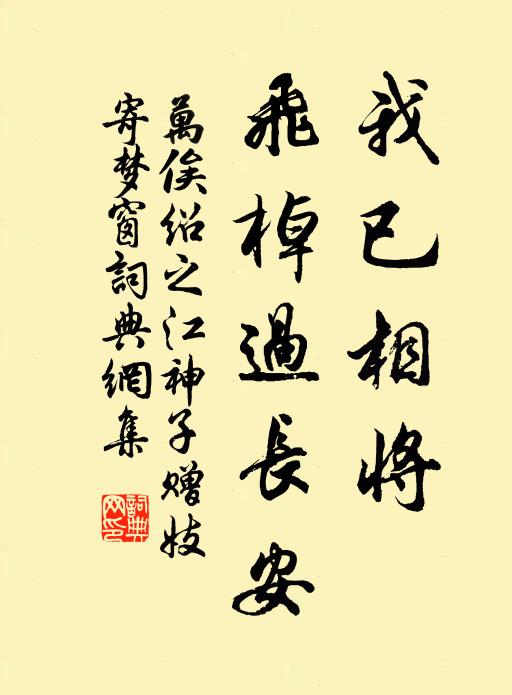 我已相将
飛棹過長安
萬俟绍之江神子贈妓
寄梦窗詞典網集
詞典网印